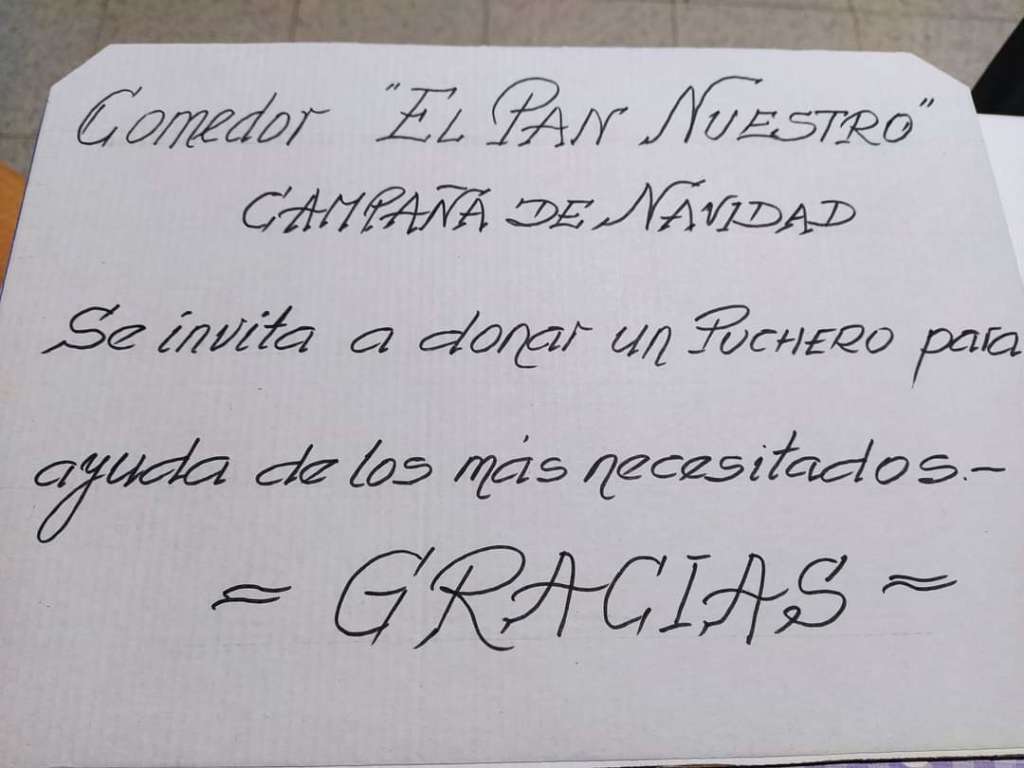 Comedor "EL PAN NUESTRO"
CAMPAÑA DE NAVIDAD
Se invita a donar un PUCHERO para
ayuda de los más necesitados.-
= GRACIAS =